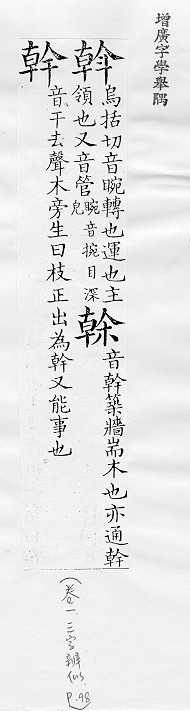 增廣字學舉隅
斡
烏括切音睕轉也運也主
領也又音管睕音捥目深皃
榦
音幹築牆耑木也亦通幹
幹
音干去聲木旁生曰枝正出為幹又能事也
(卷一 三字辨似 P.98)